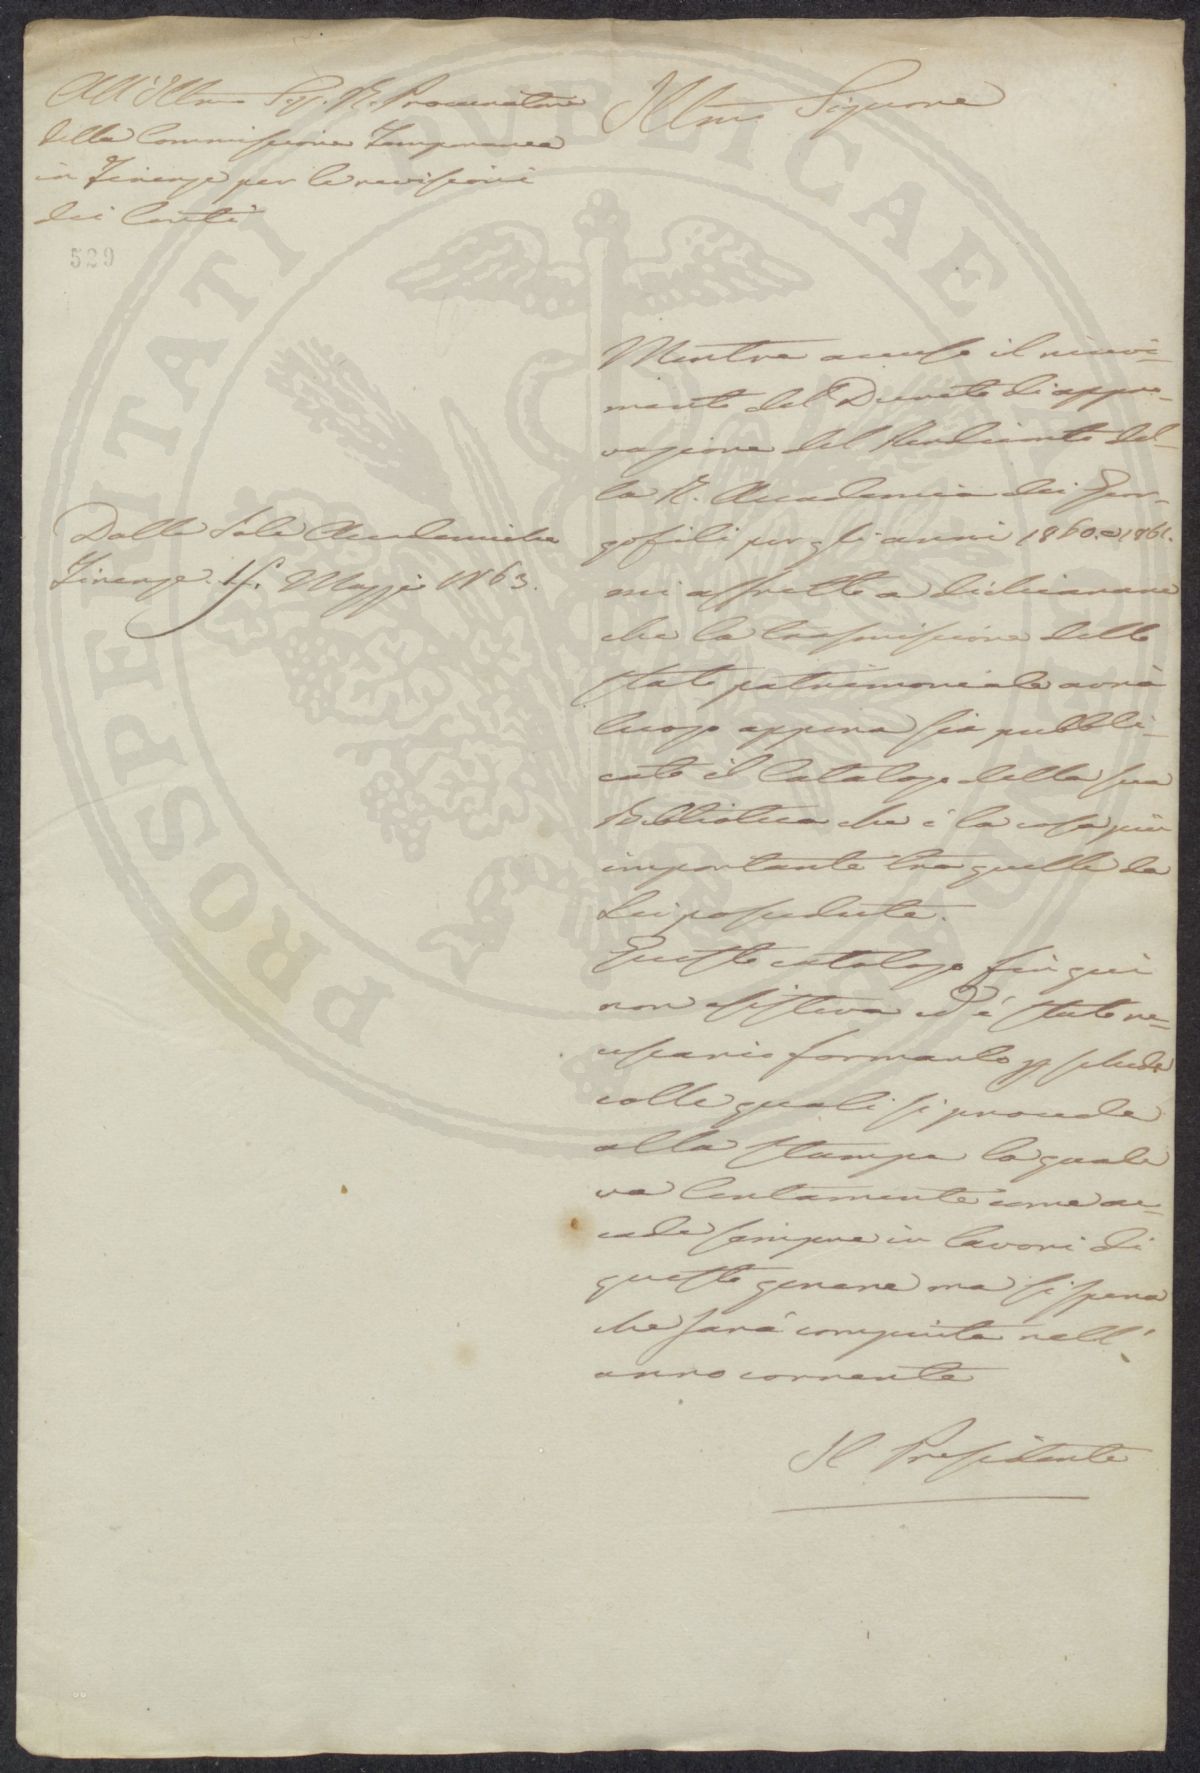 All'Illmo Sig. R. Procuratore
della Commissione Temporanea
in Firenze per le revisioni
dei Conti
529
Illmo Signore
Mentre accuso il ricevi-
mento del Decreto di appro-
vazione del Rendiconto del-
la R. Accademia dei Geor-
gofili per gli anni 1860. e 1861.
mi affretto a dichiarare
che la trasmissione dello
stato patrimoniale avrà
luogo appena sia pubbli-
cato il Catalogo della sua
Biblioteca che è la cosa più
importante tra quelle da
Lei possedute.
Questo catalogo fin qui
non esisteva ed è stato ne-
cessario formarlo p schede
colle quali si procede
alla stampa la quale
va lentamente come ac-
cade sempre in lavori di
questo genere ma si spera
che sarà compiuta nell'
anno corrente
Il Presidente
Dalle Sale Accademiche
Firenze Maggio 1863.
PROSPERITATI PUBLICAE